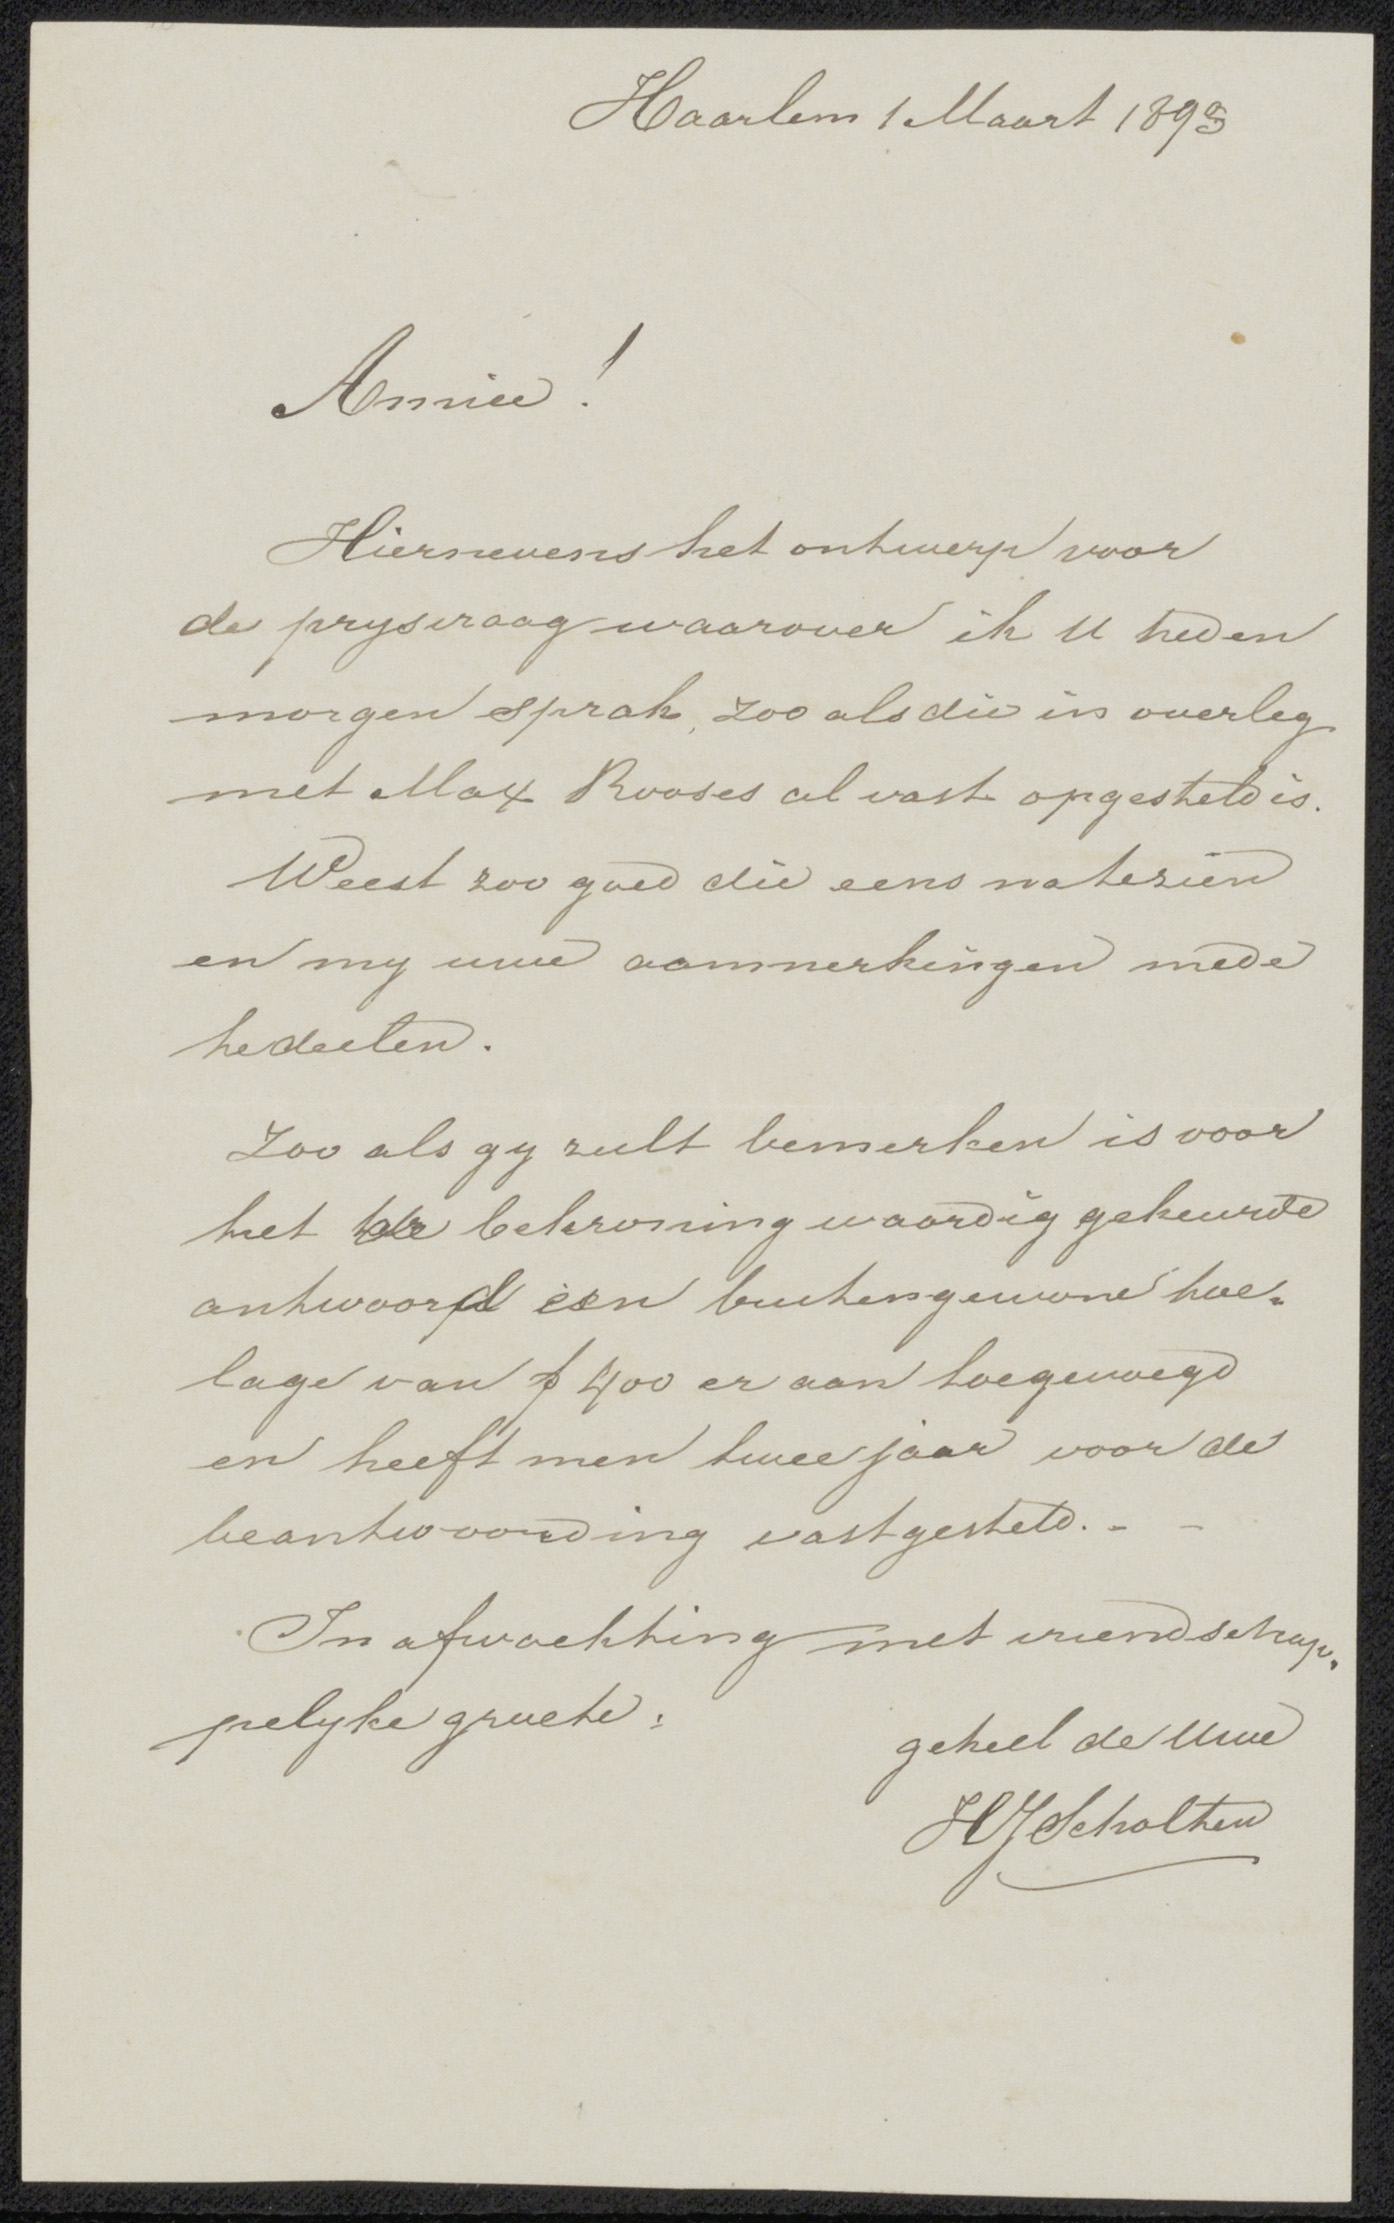 Haarlem 1 Maart 1893
Amice!
Hiernevens het ontwerp voor
de prysvraag waarover ik U heden
morgen sprak, zoo als die in overleg
met Max Rooses al vast opgesteld is.
Weest zoo goed die eens natezien
en my uwe aanmerkingen mede
tedeelen.
Zoo als gy zult bemerken is voor
het ter bekroning waardig gekeurde
antwoord een buitengewone toe-
lage van ƒ 400 er aan toegevoegd
en heeft men twee jaar voor de
beantwoording vastgesteld. - -
In afwachting met vriendschap-
pelyke groete:
geheel de Uwe
HJScholten